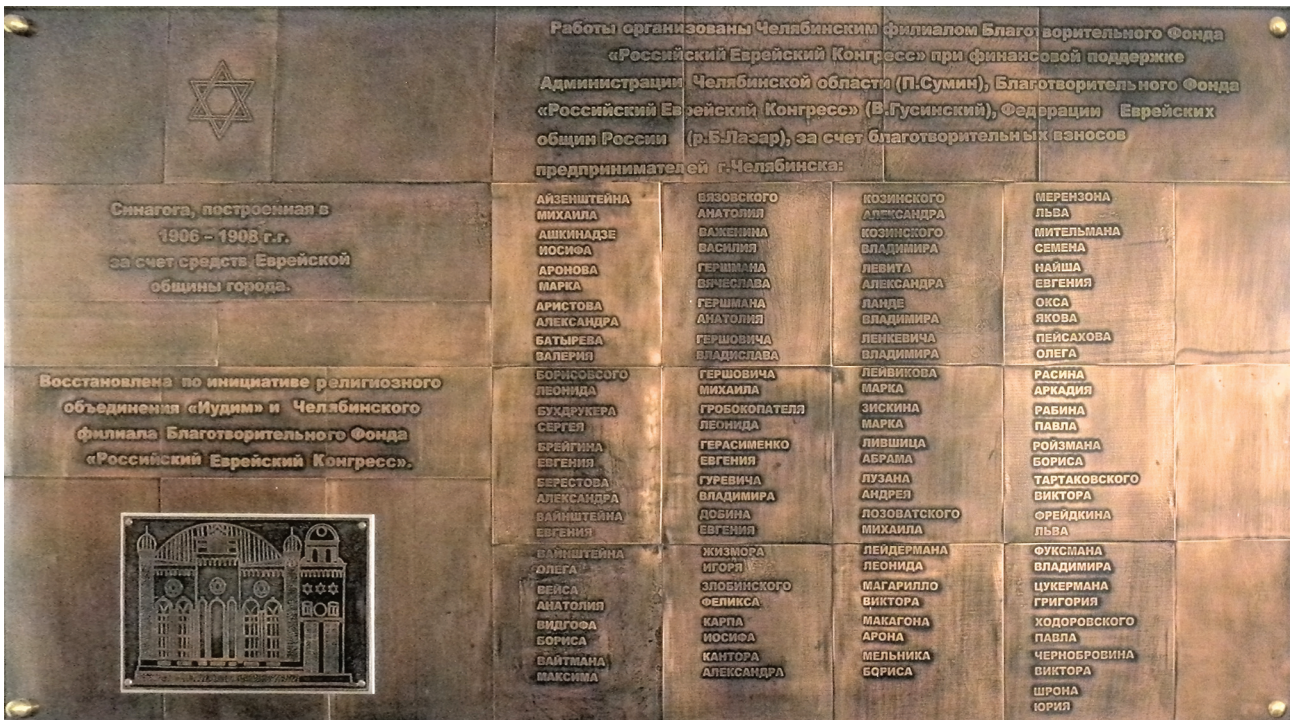 Синагога, построенная в
1906 – 1908 г.г.
за счет средств Еврейской
общины города.
Восстановлена по инициативе религиозного
объединения «Иудим» и Челябинского
филиала Благотворительного Фонда
«Российский Еврейский Конгресс».
Работы организованы Челябинским филиалом Благотворительного Фонда
«Российский Еврейский Конгресс» при финансовой поддержке
Администрации Челябинской области (П.Сумин), Благотворительного Фонда
«Российский Еврейский Конгресс» (В.Гусинский), Федерации Еврейских
общин России (р.Б.Лазар), за счет благотворительных взносов
предпринимателей г.Челябинска:
АЙЗЕНШТЕЙНА
МИХАИЛА
АШКИНАДЗЕ
ИОСИФА
АРОНОВА
МАРКА
АРИСТОВА
АЛЕКСАНДРА
БАТЫРЕВА
ВАЛЕРИЯ
БОРИСОВСОГО
ЛЕОНИДА
БУХДРУКЕРА
СЕРГЕЯ
БРЕЙГИНА
ЕВГЕНИЯ
БЕРЕСТОВА
АЛЕКСАНДРА
ВАЙНШТЕЙНА
ЕВГЕНИЯ
ВАЙНШТЕЙНА
ОЛЕГА
ВЕЙСА
АНАТОЛИЯ
ВИДГОФА
БОРИСА
ВАЙТМАНА
МАКСИМА
ВЯЗОВСКОГО
АНАТОЛИЯ
ВАЖЕНИНА
ВАСИЛИЯ
ГЕРШМАНА
ВЯЧЕСЛАВА
ГЕРШМАНА
АНАТОЛИЯ
ГЕРШОВИЧА
ВЛАДИСЛАВА
ГЕРШОВИЧА
МИХАИЛА
ГРОБОКОПАТЕЛЯ
ЛЕОНИДА
ГЕРАСИМЕНКО
ЕВГЕНИЯ
ГУРЕВИЧА
ВЛАДИМИРА
ДОБИНА
ЕВГЕНИЯ
ЖИЗМОРА
ИГОРЯ
ЗЛОБИНСКОГО
ФЕЛИКСА
КАРПА
ИОСИФА
КАНТОРА
АЛЕКСАНДРА
КОЗИНСКОГО
АЛЕКСАНДРА
КОЗИНСКОГО
ВЛАДИМИРА
ЛЕВИТА
АЛЕКСАНДРА
ЛАНДЕ
ВЛАДИМИРА
ЛЕНКЕВИЧА
ВЛАДИМИРА
ЛЕЙВИКОВА
МАРКА
ЗИСКИНА
МАРКА
ЛИВШИЦА
АБРАМА
ЛУЗАНА
АНДРЕЯ
ЛОЗОВАТСКОГО
МИХАИЛА
ЛЕЙДЕРМАНА
ЛЕОНИДА
МАГАРИЛЛО
ВИКТОРА
МАКАГОНА
АРОНА
МЕЛЬНИКА
БОРИСА
МЕРЕНЗОНА
ЛЬВА
МИТЕЛЬМАНА
СЕМЕНА
НАЙША
ЕВГЕНИЯ
ОКСА
ЯКОВА
ПЕЙСАХОВА
ОЛЕГА
РАСИНА
АРКАДИЯ
РАБИНА
ПАВЛА
РОЙЗМАНА
БОРИСА
ТАРТАКОВСКОГО
ВИКТОРА
ФРЕЙДКИНА
ЛЬВА
ФУКСМАНА
ВЛАДИМИРА
ЦУКЕРМАНА
ГРИГОРИЯ
ХОДОРОВСКОГО
ПАВЛА
ЧЕРНОБРОВИНА
ВИКТОРА
ШРОНА
ЮРИЯ